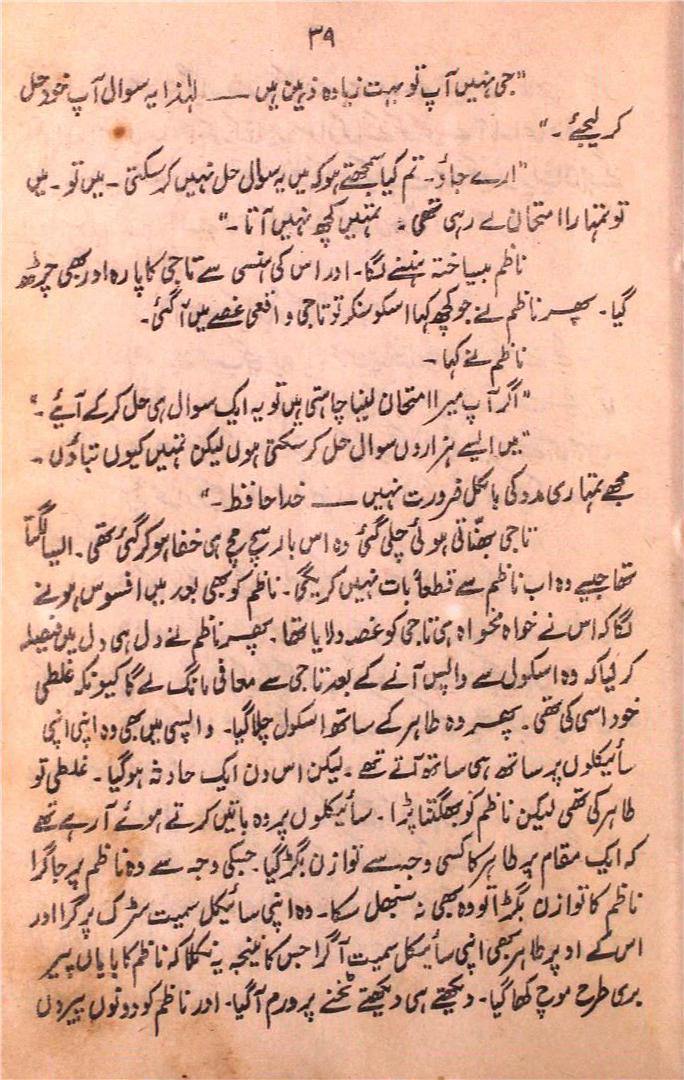 ۳۹
"جی نہیں آپ تو بہت زیادہ ذہین ہیں ــــــ لہٰذا یہ سوال آپ خود حل
کر لیجئے۔"
"ارے جاؤ۔ تم کیا سمجھتے ہو کہ میں یہ سوال حل نہیں کر سکتی۔ میں تو۔ میں
تو تمہارا امتحان لے رہی تھی۔ تمہیں کچھ نہیں آتا۔"
ناظم بیساختہ ہنسنے لگا۔ اور اس کی ہنسی سے تاجی کا پارہ اور بھی چڑھ
گیا۔ پھر ناظم نے جو کچھ کہا اسکو سنکر تو تاجی واقعی غصے میں آ گئی۔
ناظم نے کہا۔
"اگر آپ میرا امتحان لینا چاہتی ہیں تو یہ ایک سوال ہی حل کر کے آیئے۔"
"میں ایسے ہزاروں سوال حل کر سکتی ہوں لیکن تمہیں کیوں بتاؤں۔
مجھے تمہاری مدد کی بالکل ضرورت نہیں ــــــ خدا حافظ۔"
تاجی بھنّاتی ہوئی چلی گئی وہ اس بار سچ مچ ہی خفا ہو کر گئی تھی۔ ایسا لگتا
تھا جیسے وہ اب ناظم سے قطعاً بات نہیں کریگی۔ ناظم کو بھی بعد میں افسوس ہونے
لگا کہ اس نے خواہ مخواہ ہی تاجی کو غصہ دلایا تھا۔ پھر ناظم نے دل ہی دل میں فیصلہ
کر لیا کہ وہ اسکول سے واپس آنے کے بعد تاجی سے معافی مانگ لے گا کیونکہ غلطی
خود اسی کی تھی۔ پھر وہ طاہر کے ساتھ اسکول چلا گیا۔ واپسی میں بھی وہ اپنی اپنی
سائیکلوں پر ساتھ ہی ساتھ آتے تھے۔ لیکن اس دن ایک حادثہ ہو گیا۔ غلطی تو
طاہر کی تھی لیکن ناظم کو بھگتنا پڑا۔ سائیکلوں پر وہ باتیں کرتے ہوئے آ رہے تھے
کہ ایک مقام پر طاہر کا کسی وجہ سے توازن بگڑ گیا۔ جسکی وجہ سے وہ ناظم پر جا گرا
ناظم کا توازن بگڑا تو وہ بھی نہ سنبھل سکا۔ وہ اپنی سائیکل سمیت سڑک پر گرا اور
اس کے اوپر طاہر بھی اپنی سائیکل سمیت آ گرا جس کا نتیجہ یہ نکلا کہ ناظم کا بایاں پیر
بری طرح موچ کھا گیا۔ دیکھتے ہی دیکھتے ٹخنے پر ورم آ گیا۔ اور ناظم کو دونوں پیروں